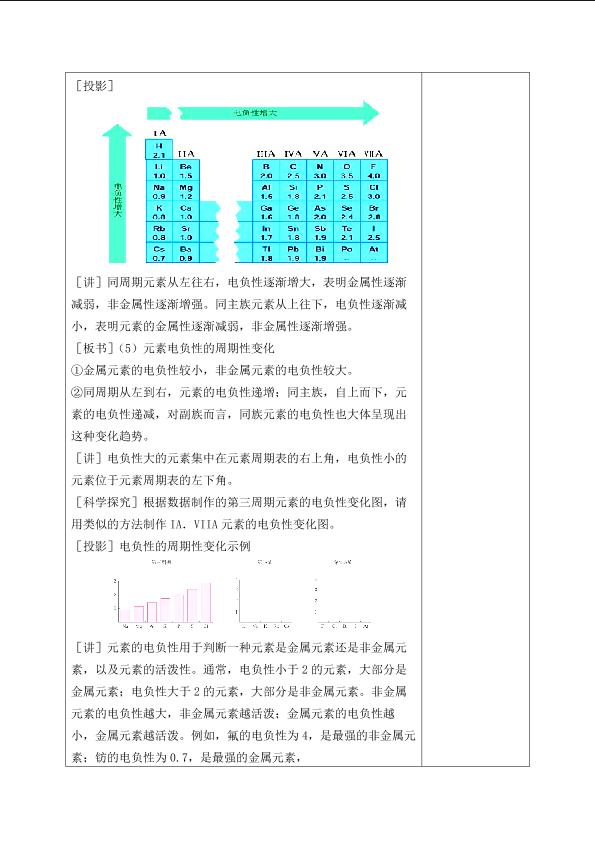 ［投影］
电负性增大
ⅠA
H
2.1
ⅡA ⅢA ⅣA ⅤA ⅥA ⅦA
Li Be B C N O F
1.0 1.5 2.0 2.5 3.0 3.5 4.0
Na Mg Al Si P S Cl
0.9 1.2 1.5 1.8 2.1 2.5 3.0
K Ca Ga Ge As Se Br
0.8 1.0 1.6 1.8 2.0 2.4 2.8
Rb Sr In Sn Sb Te I
0.8 1.0 1.7 1.8 1.9 2.1 2.5
Cs Ba Tl Pb Bi Po At
0.7 0.9 1.8 1.9 1.9
电负性增大
［讲］同周期元素从左往右，电负性逐渐增大，表明金属性逐渐
减弱，非金属性逐渐增强。同主族元素从上往下，电负性逐渐减
小，表明元素的金属性逐渐减弱，非金属性逐渐增强。
［板书］（5）元素电负性的周期性变化
①金属元素的电负性较小，非金属元素的电负性较大。
②同周期从左到右，元素的电负性递增；同主族，自上而下，元
素的电负性递减，对副族而言，同族元素的电负性也大体呈现出
这种变化趋势。
［讲］电负性大的元素集中在元素周期表的右上角，电负性小的
元素位于元素周期表的左下角。
［科学探究］根据数据制作的第三周期元素的电负性变化图，请
用类似的方法制作 IA．VIIA 元素的电负性变化图。
［投影］电负性的周期性变化示例
［讲］元素的电负性用于判断一种元素是金属元素还是非金属元
素，以及元素的活泼性。通常，电负性小于 2 的元素，大部分是
金属元素；电负性大于 2 的元素，大部分是非金属元素。非金属
元素的电负性越大，非金属元素越活泼；金属元素的电负性越
小，金属元素越活泼。例如，氟的电负性为 4，是最强的非金属元
素；钫的电负性为 0.7，是最强的金属元素，